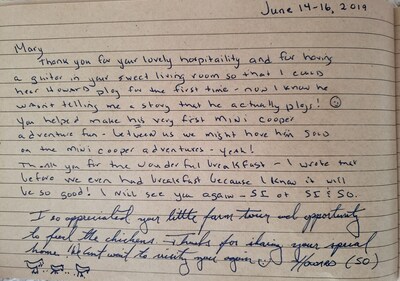 June 14-16, 2019
Mary
Thank you for your lovely hospitality and for having
a guitar in your sweet living room so that I could
hear Howard play for the first time - now I know he
wasn't telling me a story that he actually plays!
You helped make his very first mini cooper
adventure fun - between us we might have him sold
on the mini cooper adventures - Yeah!
Thank you for the wonderful breakfast - I wrote that
before we even had breakfast because I know it will
be so good! I will see you again - SI of SI & SO.
I so appreciated your little farm and opportunity
to feed the chickens Thanks for sharing your special
home! We can't wait to visit you again Howard (SO)